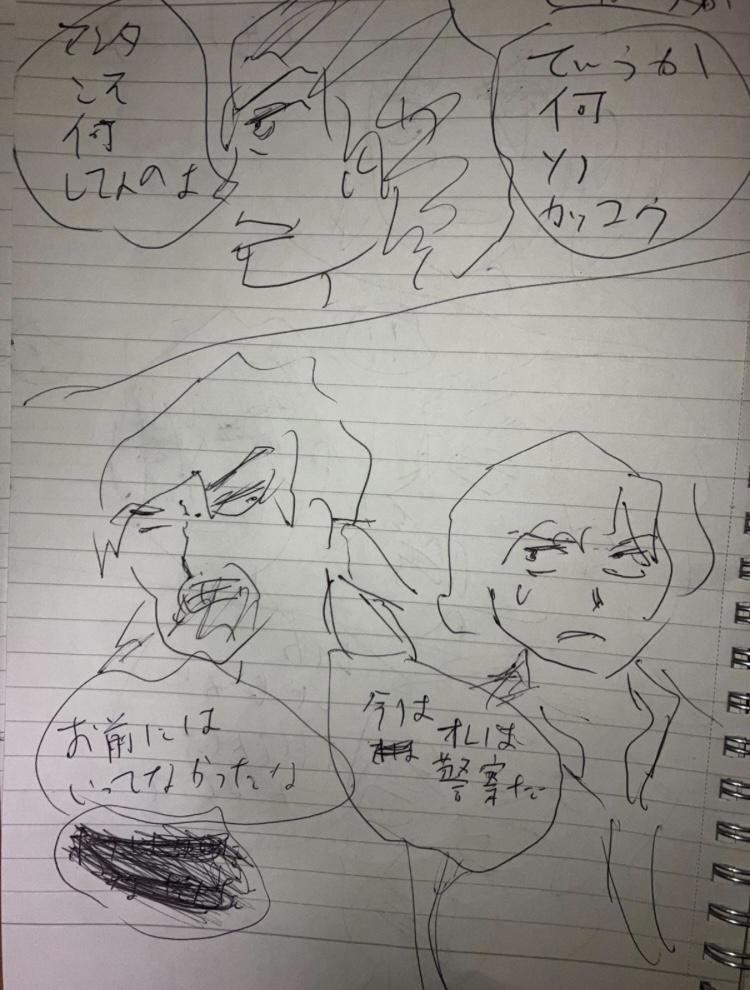 アンタ
こそ
何
してんのよ
ていうか
何
ソノ
カッコウ
お前には
いってなかったな
今は
オレは
警察だ